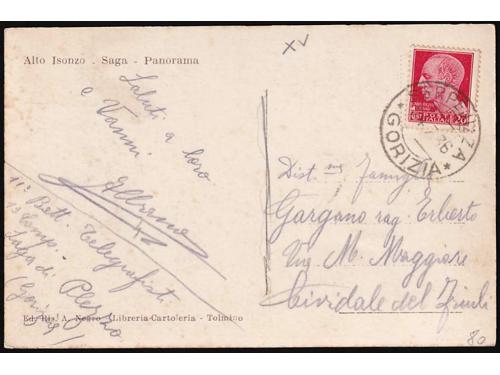 Alto Isonzo . Saga - Panorama
XV
Saluti a loro
e Vanni
11° Batt. Telegrafisti
Saga di Plezzo
(Gorizia)
Ed. Ris. A. Negro (Libreria-Cartoleria - Tolmino
POSTE ITALIANE
20
SERPENIZZA
36
* GORIZIA *
Dist. ma Famiglia
Gargano rag. Erberto
Via M. Maggiore
Cividale del Friuli
80